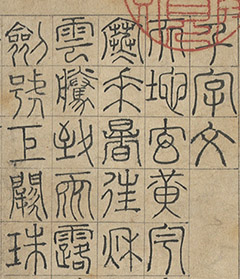 千字文
天地玄黃宇
寒來暑往秋
雲騰致雨露
劍號巨闕珠